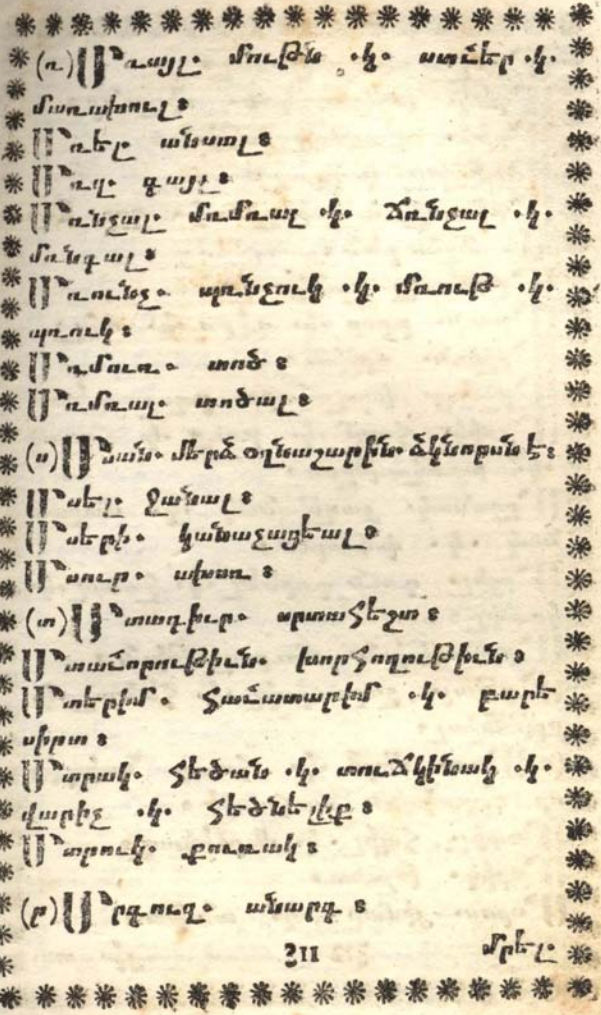 (ռ) Մռայլ. մութն .կ. ստուեր .կ.
մառախուլ։
Մռել. անսալ։
Մռղ. գայլ։
Մռնչալ. մռմռալ .կ. ճռնչալ .կ.
մռնգալ։
Մռունչ. պռնչուկ .կ. մռութ .կ.
պռուկ։
Մռմուռ. տոծ։
Մռմռալ. տոծալ։
(ս) Մսան.
Մսել. ջանալ։
Մսերի. կանաչացեալ։
Մսուր. ախոռ։
(տ) Մտադիւր. սրտահեշտ։
Մտածորութիւն. խորհողութիւն։
Մտերիմ. հաւատարիմ .կ. բարե
սիրտ։
Մտրակ. հեծան .կ. տուճկինակ .կ.
վարիչ .կ. հեծնելիք։
Մտրուկ. քուռակ։
(ր) Մրգուզ. անարգ։
մրել.